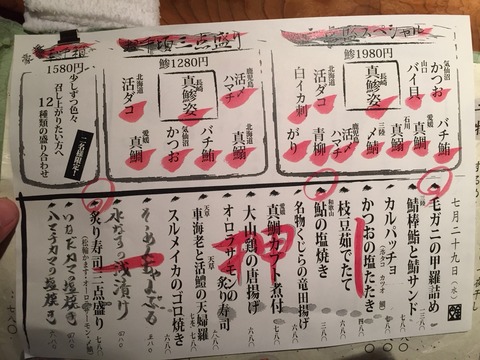 三点盛り
スペシャル
1580円
鯵1280円
鯵1980円
少しずつ色々
召し上がりたい方へ
12種類の盛り合わせ
二名様限定!
長崎
真鯵姿
鹿児島
活〆ハマチ
北海道
活ダコ
北海道
真鰯
バチ鮪
気仙沼
かつお
愛媛
真鯛
気仙沼
かつお
山口
バイ貝
長崎
真鯵姿
北海道
活ダコ
白イカ刺
バチ鮪
愛媛
真鯛
石川
真鰯
三陸
〆鯖
活〆ハマチ
青柳
がり
七月二十九日(水)
毛ガニの甲羅詰め
鯖棒鮨と鯖サンド
カルパッチョ
かつおの塩たたき
枝豆茹でたて
和歌山
鮎の塩焼き
名物くじらの竜田揚げ
愛媛
真鯛カブト煮付
大山鶏の唐揚げ
オーロラサーモンの炙り寿司
天草
車海老と活鱧の天婦羅
スルメイカのゴロ焼き
そうめんちゃんぷる
水なすの浅漬り
炙り寿司二点盛り
いなだカマの塩焼き
ハマチカマの塩焼き